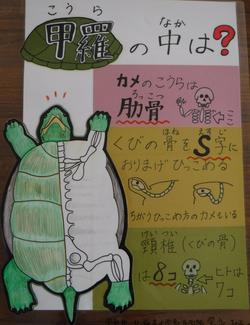 こうら
なか
甲羅の中は?
カメのこうらは
ろっこつ
肋骨
ほね
えすじ
くびの骨をS字に
おりまげひっこめる
ちがうひっこめ方のカメもいる
けいつい
頸椎(くびの骨)
は8コ
ヒトは
7コ